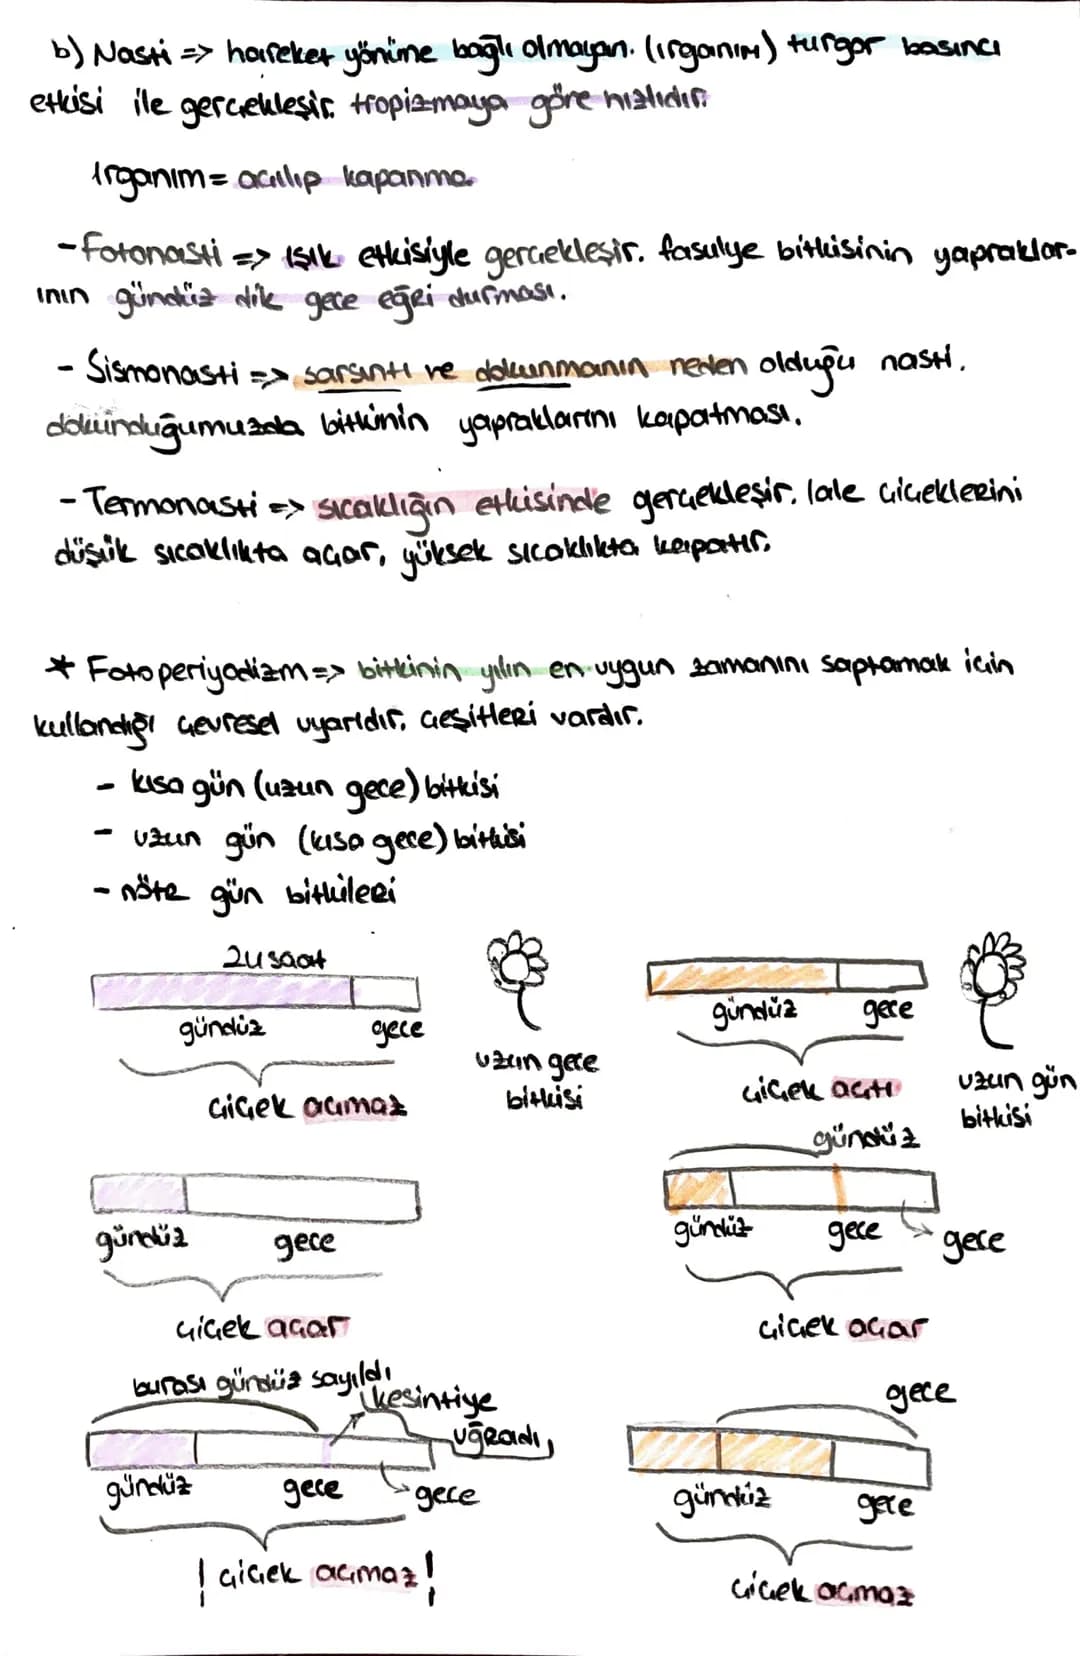 b) Nasti => hareket yönüne bağlı olmayan. (ırganım) turgor basıncı
etkisi ile gerçekleşir. tropizmaya göre hızlıdır.
Irganım = açılıp kapanma.
- Fotonasti => ışık etkisiyle gerçekleşir. fasulye bitkisinin yapraklar-
ının gündüz dik gece eğri durması.
- Sismonasti => sarsıntı ve dokunmanın neden olduğu nasti.
dokunduğumuzda bitkinin yapraklarını kapatması.
- Termonasti => sıcaklığın etkisinde gerçekleşir. lale çiçeklerini
düşük sıcaklıkta açar, yüksek sıcaklıkta kapatır.
* Fotoperiyodizm => bitkinin yılın en uygun zamanını saptamak için
kullandığı çevresel uyarıdır. çeşitleri vardır.
- kısa gün (uzun gece) bitkisi
- uzun gün (kısa gece) bitkisi
- nötr gün bitkileri
24 saat
gündüz gece
çiçek açmaz
uzun gece
bitkisi
gündüz gece
çiçek açtı
uzun gün
bitkisi
gündüz gece
çiçek açar
gündüz
gündüz gece gece
çiçek açar
burası gündüz sayıldı
(kesintiye
uğradı,
gündüz gece gece
! çiçek açmaz!
gece
gündüz gece
çiçek açmaz